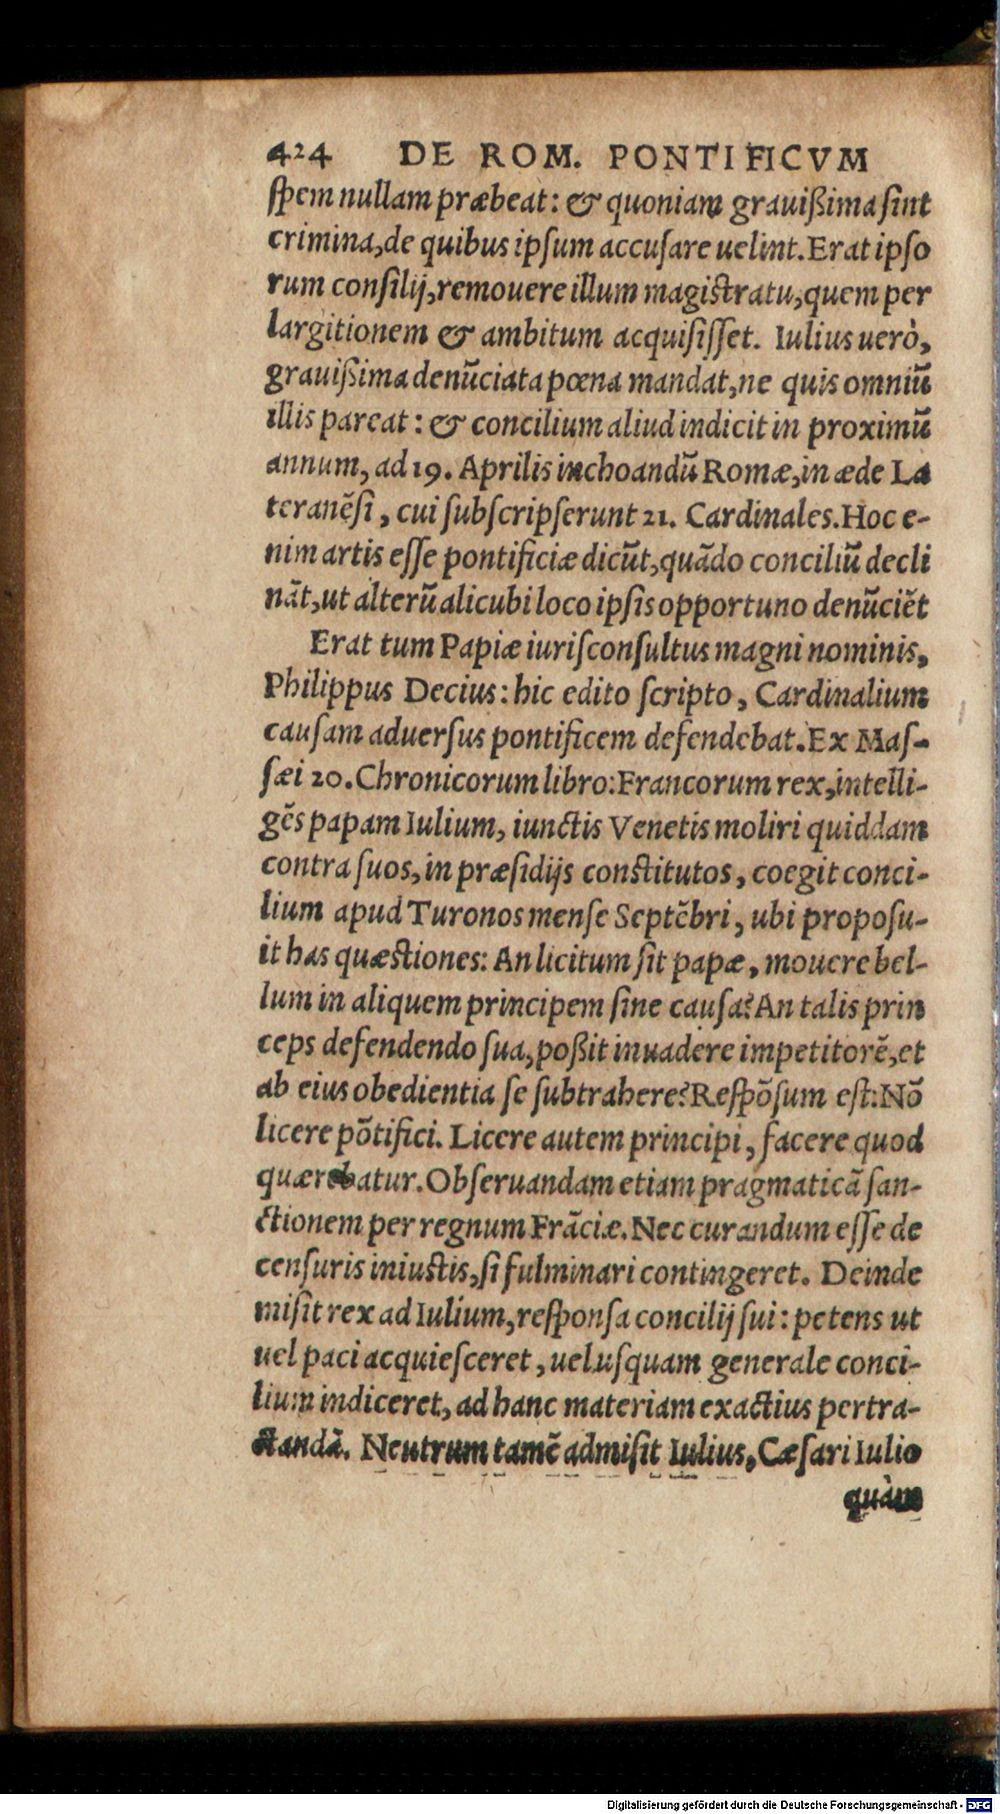 424 DE ROM. PONTIFICVM
ſpem nullam præbeat: & quoniam grauißima ſint
crimina, de quibus ipſum accuſare uelint. Erat ipſo
rum conſilij, remouere illum magiſtratu, quem per
largitionem & ambitum acquiſiſſet. Iulius uerò,
grauißima denũciata pœna mandat, ne quis omniũ
illis pareat: & concilium aliud indicit in proximũ
annum, ad 19. Aprilis inchoandũ Romæ, in æde La
teranẽſi, cui ſubſcripſerunt 21. Cardinales. Hoc e-
nim artis eſſe pontificiæ dicũt, quãdo conciliũ decli
nãt, ut alterũ alicubi loco ipſis opportuno denũciẽt
Erat tum Papiæ iuriſconſultus magni nominis,
Philippus Decius: hic edito ſcripto, Cardinalium
cauſam aduerſus pontificem defendebat. Ex Maſ-
ſæi 20. Chronicorum libro: Francorum rex, intelli-
gẽs papam Iulium, iunctis Venetis moliri quiddam
contra ſuos, in præſidijs conſtitutos, coegit conci-
lium apud Turonos menſe Septẽbri, ubi propoſu-
it has quæſtiones: An licitum ſit papæ, mouere bel-
lum in aliquem principem ſine cauſa? An talis prin
ceps defendendo ſua, poßit inuadere impetitorẽ, et
ab eius obedientia ſe ſubtrahere? Reſpõſum eſt: Nõ
licere põtifici. Licere autem principi, facere quod
quærebatur. Obſeruandam etiam pragmaticã ſan-
ctionem per regnum Frãciæ. Nec curandum eſſe de
cenſuris iniuſtis, ſi fulminari contingeret. Deinde
miſit rex ad Iulium, reſponſa concilij ſui: petens ut
uel paci acquieſceret, uel uſquam generale conci-
lium indiceret, ad hanc materiam exactius pertra-
ctandã. Neutrum tamẽ admiſit Iulius, Cæſari Iulio
quàm
Digitalisierung gefördert durch die Deutsche Forschungsgemeinschaft - DFG